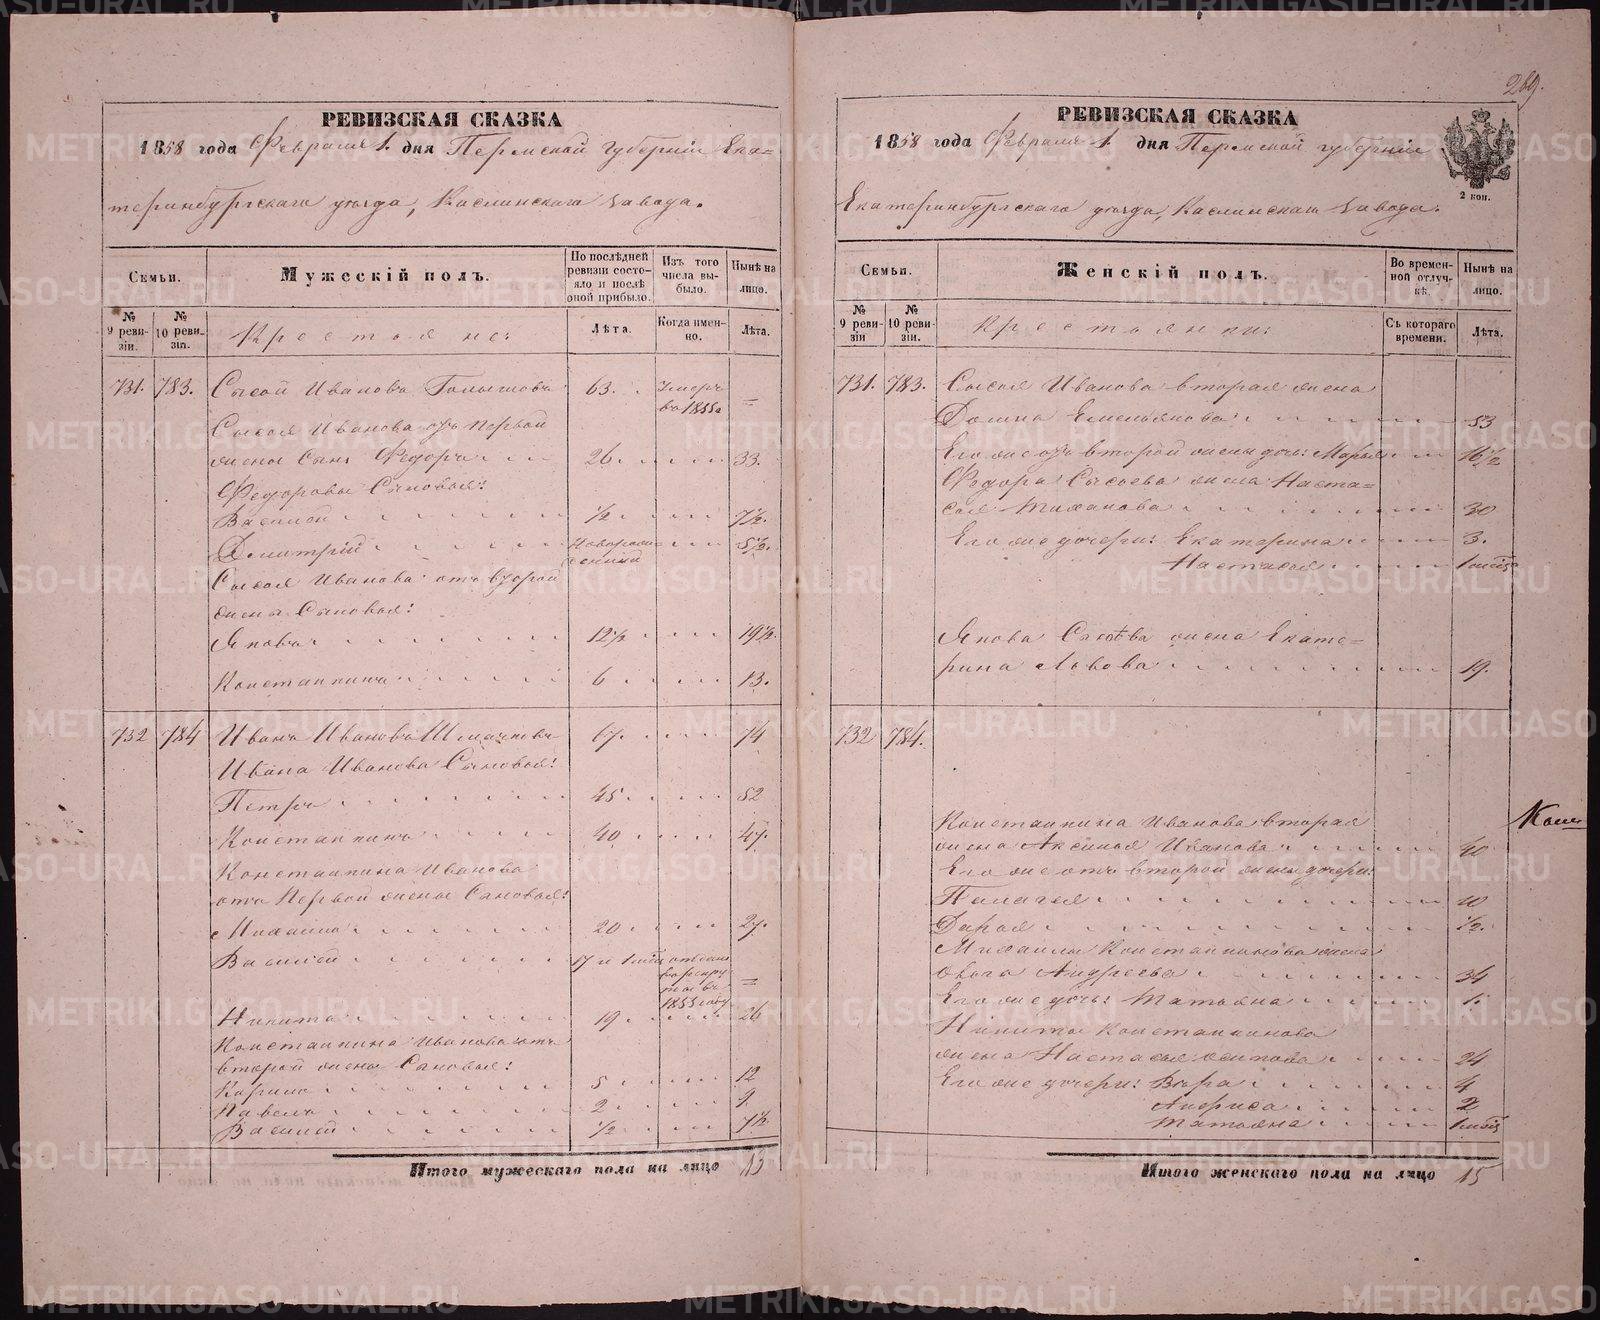 289.
РЕВИЗСКАЯ СКАЗКА
1858 года Февраля 1. дня Пермской губернiи Ека=
теринбургскаго уѣзда, Каслинскаго завода.
Семьи.
Мужескiй полъ.
По послѣдней ревизiи состояло и послѣ оной прибыло.
Изъ того числа выбыло.
Нынѣ на лицо.
№ 9 ревизiи.
№ 10 ревизiи.
Крестьяне:
Лѣта.
Когда именно.
Лѣта.
731. 783. Сысой Ивановъ 63. умеръ въ 1855 =
Сысоя Иванова отъ первой
жены Сынъ Федоръ 26. 33.
Федоровы Сыновья:
Василей 1/2. 7 1/2.
Дмитрiй новорожденный 5 1/2.
Сысоя Иванова отъ второй
жены Сыновья:
Яковъ 12 1/2 19 1/2.
Констанкинъ 6 13.
732 784 Иванъ Ивановъ 67. 74
Ивана Иванова Сыновья:
Петръ 45. 52
Констанкинъ 40 47.
Констанкина Иванова
отъ первой жены Сыновья:
Михайло 20 27.
Василей 17 и 1 мѣс отданъ въ рекруты въ 1855 году =
Никита 19 26
Констанкина Иванова отъ
второй жены Сыновья:
Кирило 5 12
Павелъ 2 9.
Василей 1/2 7 1/2
Итого мужескаго пола на лицо 13
РЕВИЗСКАЯ СКАЗКА
1858 года Февраля 1. дня Пермской губернiи
Екатеринбургскаго уѣзда, Каслинскаго завода.
2 коп.
Семьи.
Женскiй полъ.
Во временной отлучкѣ.
Нынѣ на лицо.
№ 9 ревизiи
№ 10 ревизiи.
Крестьянки:
Съ котораго времени.
Лѣта.
731. 783. Сысоя Иванова вторая жена
Домна Емельянова 53
Его же отъ второй жены дочь: Марья 16 1/2
Федора Сысоева жена Наста=
сья 30
Его же дочери: Екатерина 3.
Настасья 1 мѣс
Якова Сысоева жена Екате=
рина Львова 19.
732 784.
Констанкина Иванова вторая
жена Аксинья Иванова 40
Его же отъ второй жены дочери:
Палагея 10
Дарья 1/2.
Михайлы Констанкинова жена
Андреева 34
Его же дочь: Татьяна 1.
Никиты Констанкинова
жена Настасья Осипова 24
Его же дочери: Вѣра 4
2
Татьяна 1 мѣс
Итого женскаго пола на лицо 15
METRIKI.GASO-URAL.RU